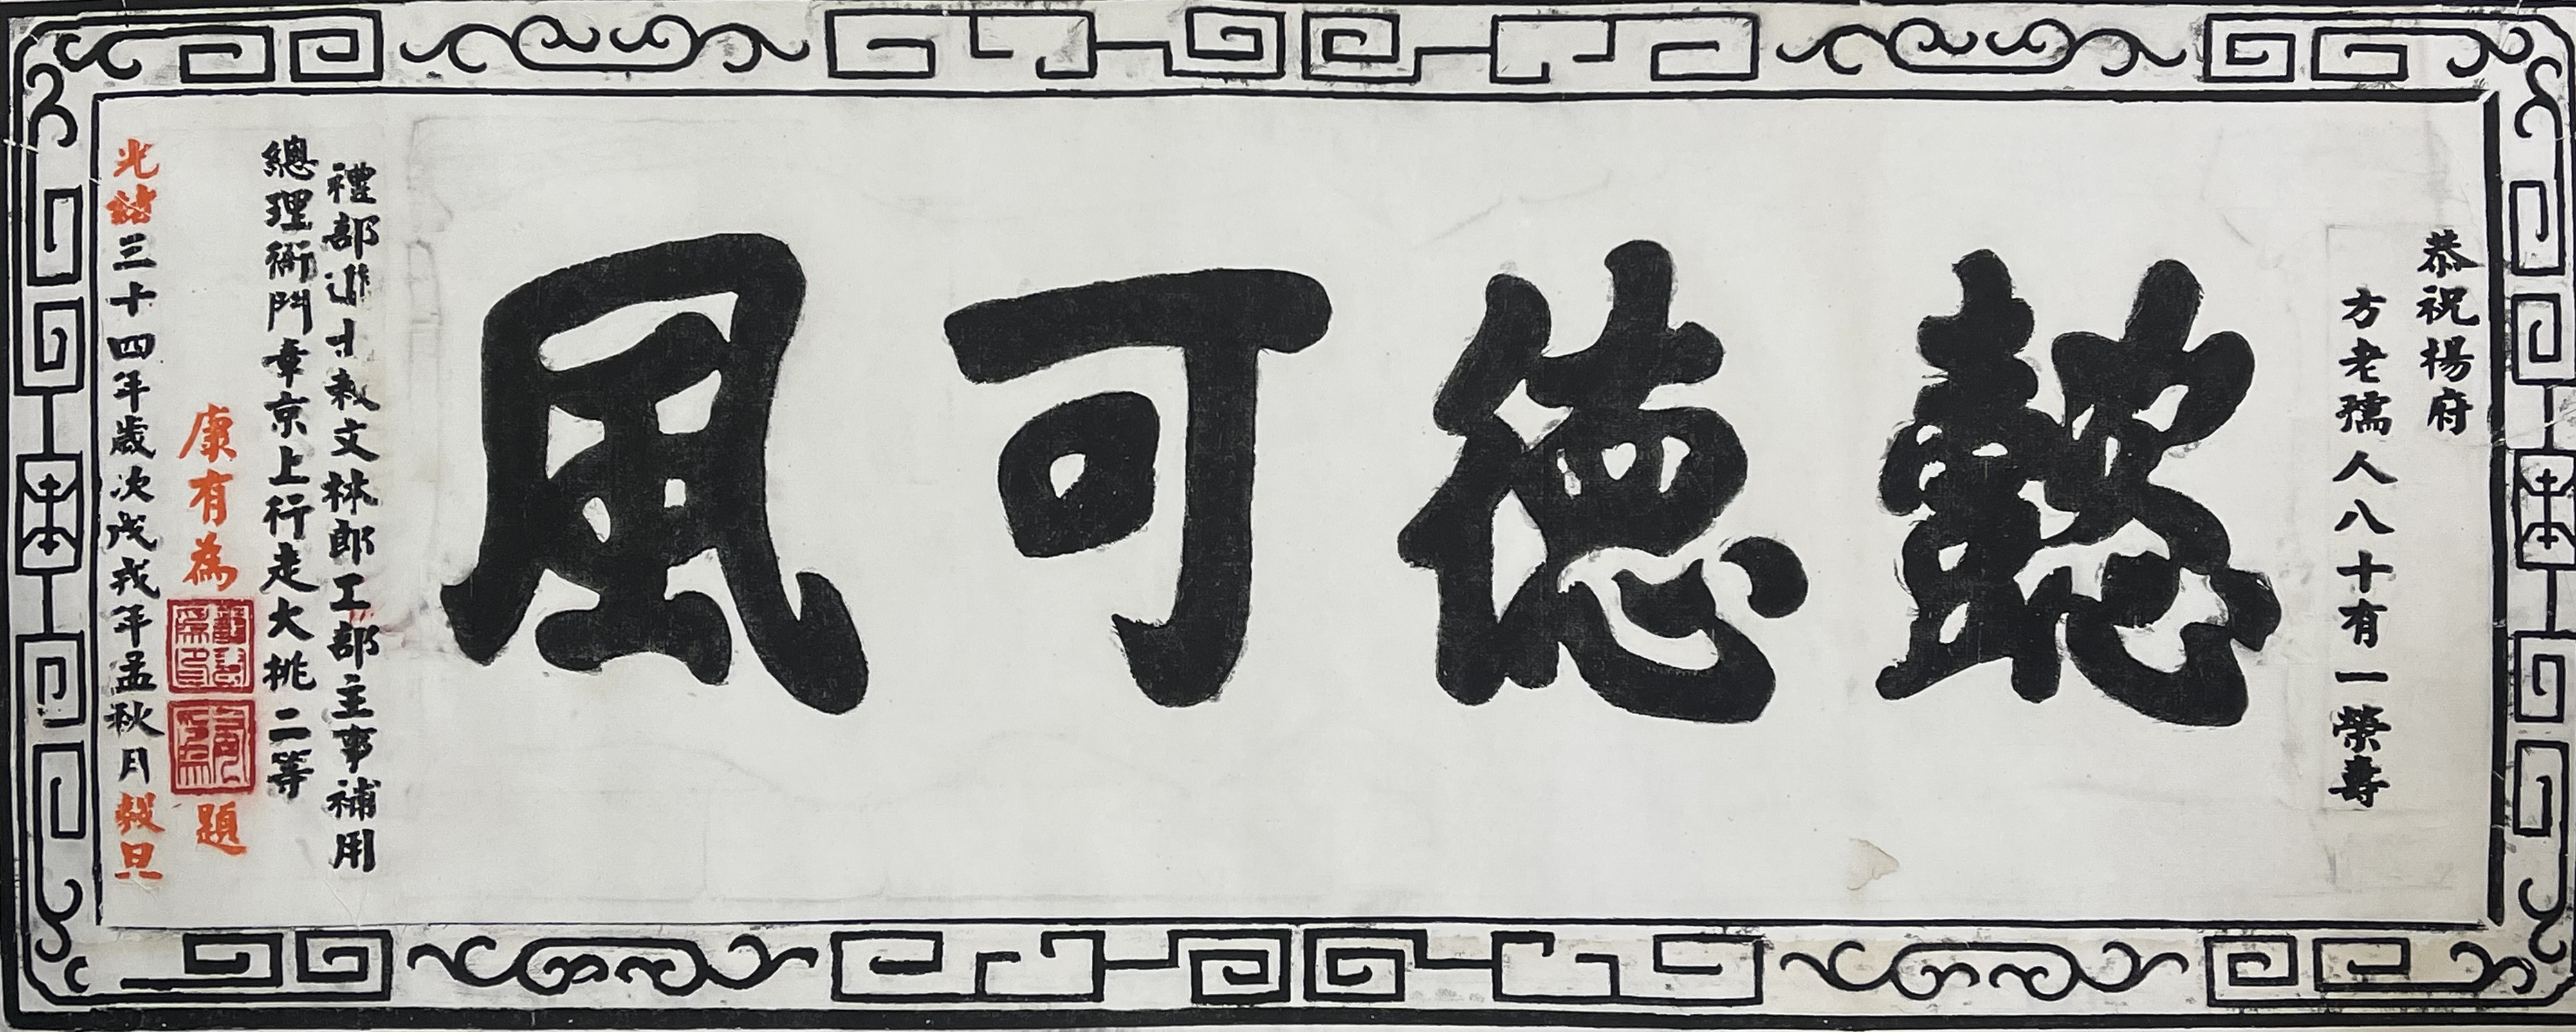 恭祝楊府
方老孺人八十有一榮壽
懿德可風
禮部進士敕文林郎工部主事補用
總理衙門章京上行走大挑二等
康有為
題
光緒三十四年歲次戊戌年孟秋月穀旦